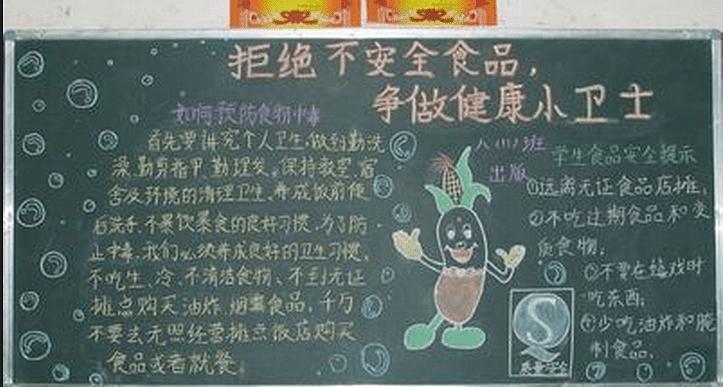 拒绝不安全食品，
争做健康小卫士
如何预防食物中毒
首先要讲究个人卫生，做到勤洗
澡、勤剪指甲、勤理发。保持教室、宿
舍及环境的清理卫生，养成饭前便
后洗手、不暴饮暴食的良好习惯。为了防
止中毒，我们必须养成良好的卫生习惯，
不吃生、冷、不清洁食物、不到无证
摊点购买油炸、烟熏食品，千万
不要去无照经营摊点饭店购买
食品或者就餐。
八(八)班
出版
学生食品安全提示
①远离无证食品店摊；
②不吃过期食品和变
质食物；
③不要在嬉戏时
吃东西；
④少吃油炸和腌
制食品。
质量安全